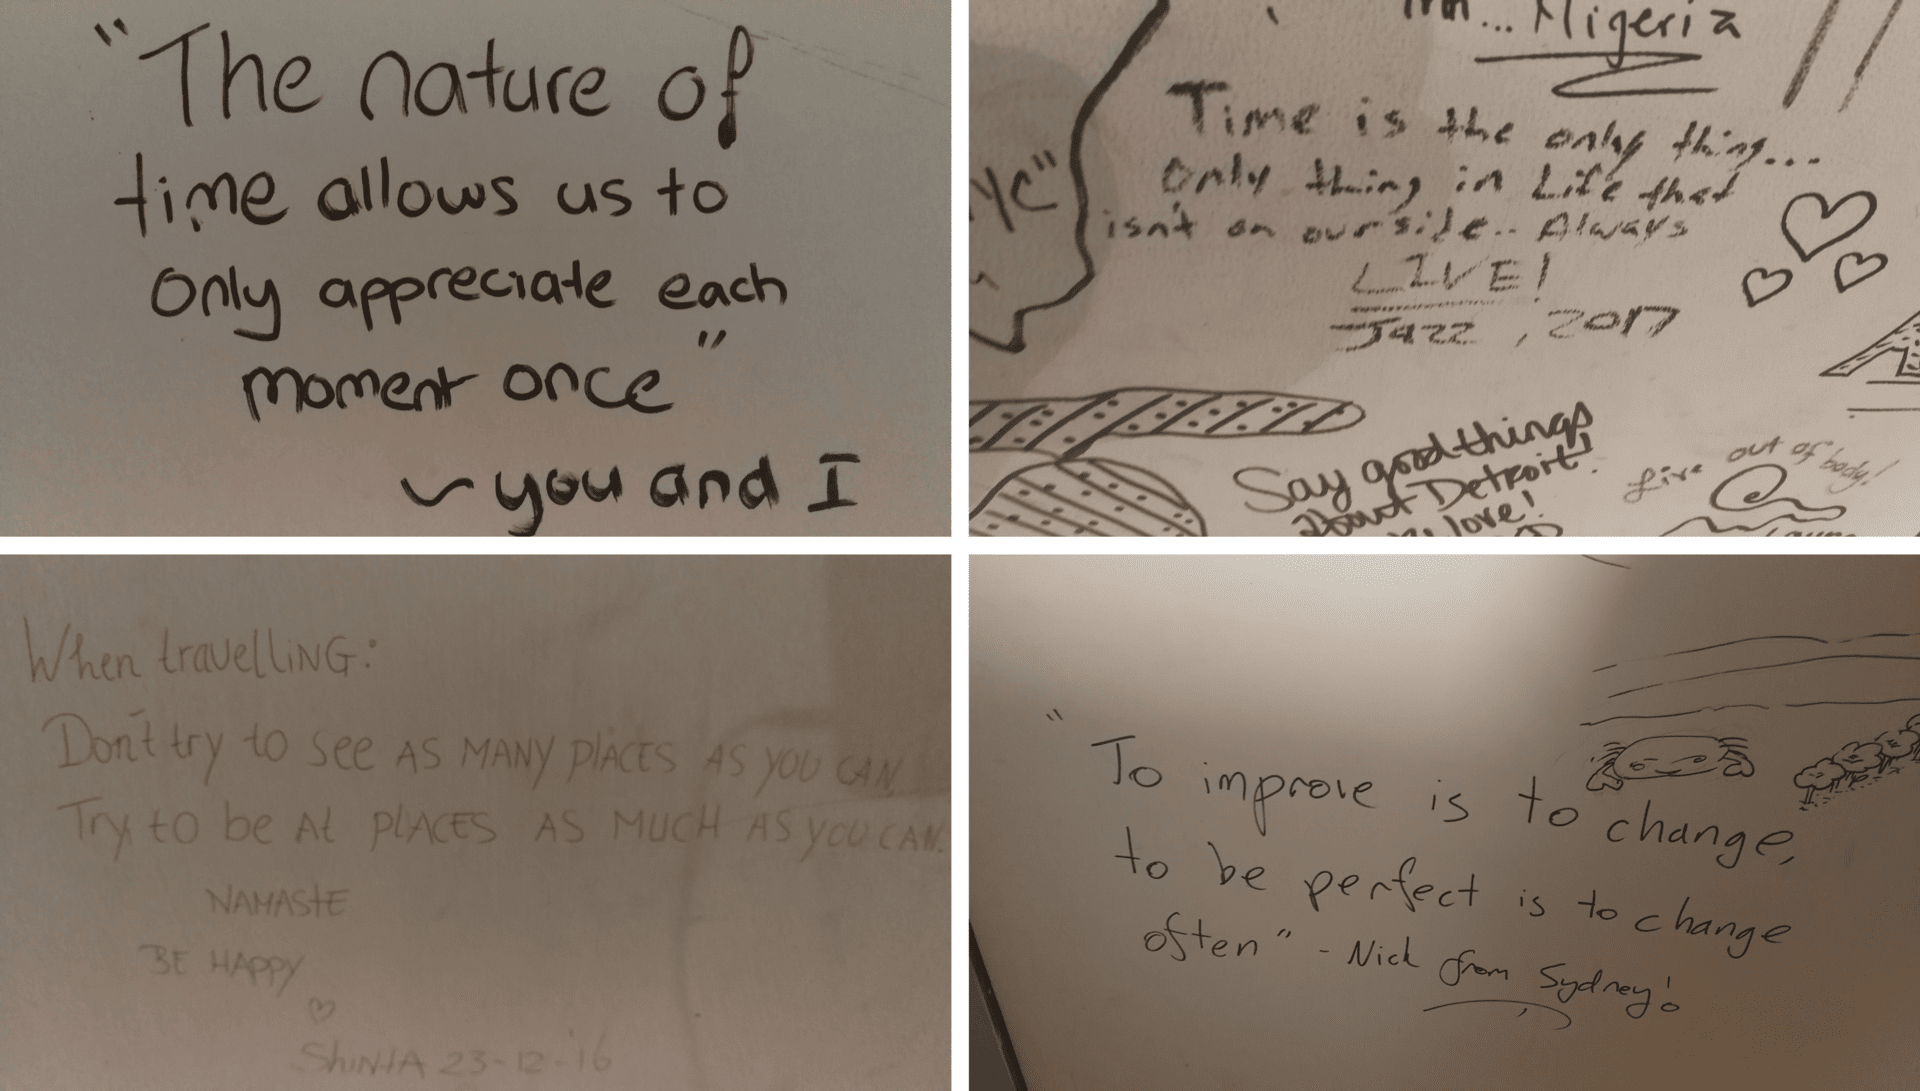 "The nature of
time allows us to
only appreciate each
moment once"
~ you and I
... Nigeria
Time is the only thing...
only thing in Life that
isn't on our side.. Always
LIVE!
Jazz, 2017
Say good things
about Detroit!
love!
Live out of body!
When travelliNG:
Don't try to see AS MANY PlACES AS YOU CAN
Try to be At PlACES AS MUCH AS YOU CAN.
NAMASTE
BE HAPPY
ShiNtA 23-12-'16
"To improve is to change,
to be perfect is to change
often" - Nick from Sydney!